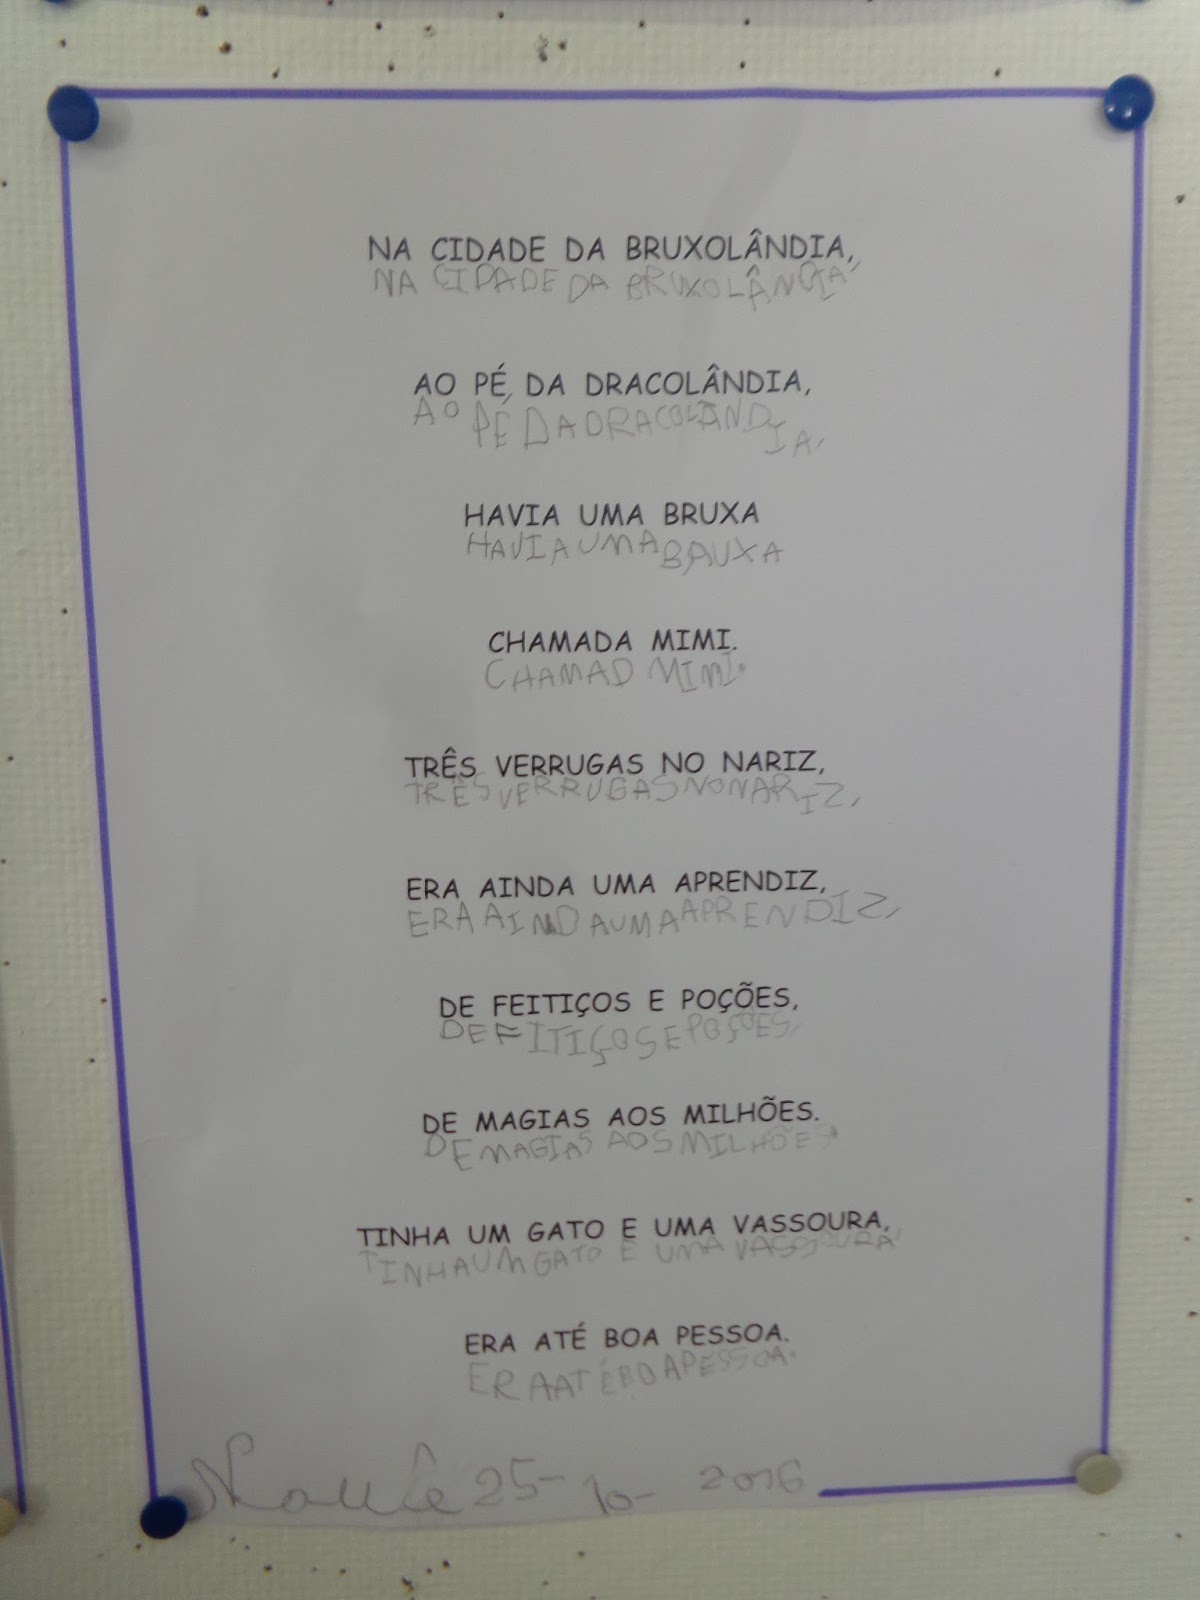 NA CIDADE DA BRUXOLÂNDIA,
NA CIDADE DA BRUXOLÂNDIA,
AO PÉ DA DRACOLÂNDIA,
AO PÉ DA DRACOLÂND
IA,
HAVIA UMA BRUXA
HAVIA UMA BRUXA
CHAMADA MIMI.
CHAMAD MIMI.
TRÊS VERRUGAS NO NARIZ,
TRÊS VERRUGAS NO NARIZ,
ERA AINDA UMA APRENDIZ,
ERA AINDA UMA APRENDIZ,
DE FEITIÇOS E POÇÕES,
DE FITIÇOS E POÇÕES,
DE MAGIAS AOS MILHÕES.
DE MAGIAS AOS MILHÕES.
TINHA UM GATO E UMA VASSOURA,
TINHA UM GATO E UMA VASSOURA,
ERA ATÉ BOA PESSOA.
ERA ATÉ BOA PESSOA.
25-10-2016